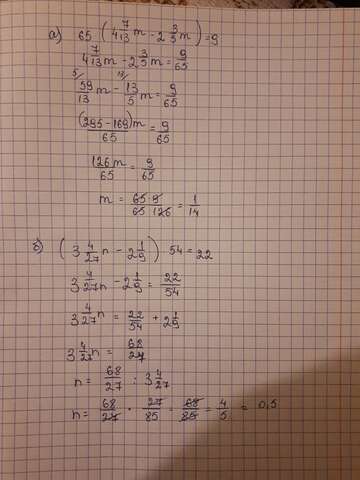 а) 65 (4 7/13 m - 2 3/5 m) = 9
4 7/13 m - 2 3/5 m = 9/65
5/ 59/13 m - 13/ 13/5 m = 9/65
(295-169)m/65 = 9/65
126m/65 = 9/65
m = 65·9/65·126 = 1/14
б) (3 4/27 n - 2 1/9) 54 = 22
3 4/27 n - 2 1/9 = 22/54
3 4/27 n = 22/54 + 2 1/9
3 4/27 n = 68/27
n = 68/27 : 3 4/27
n = 68/27 · 27/85 = 68/85 = 4/5 = 0,5